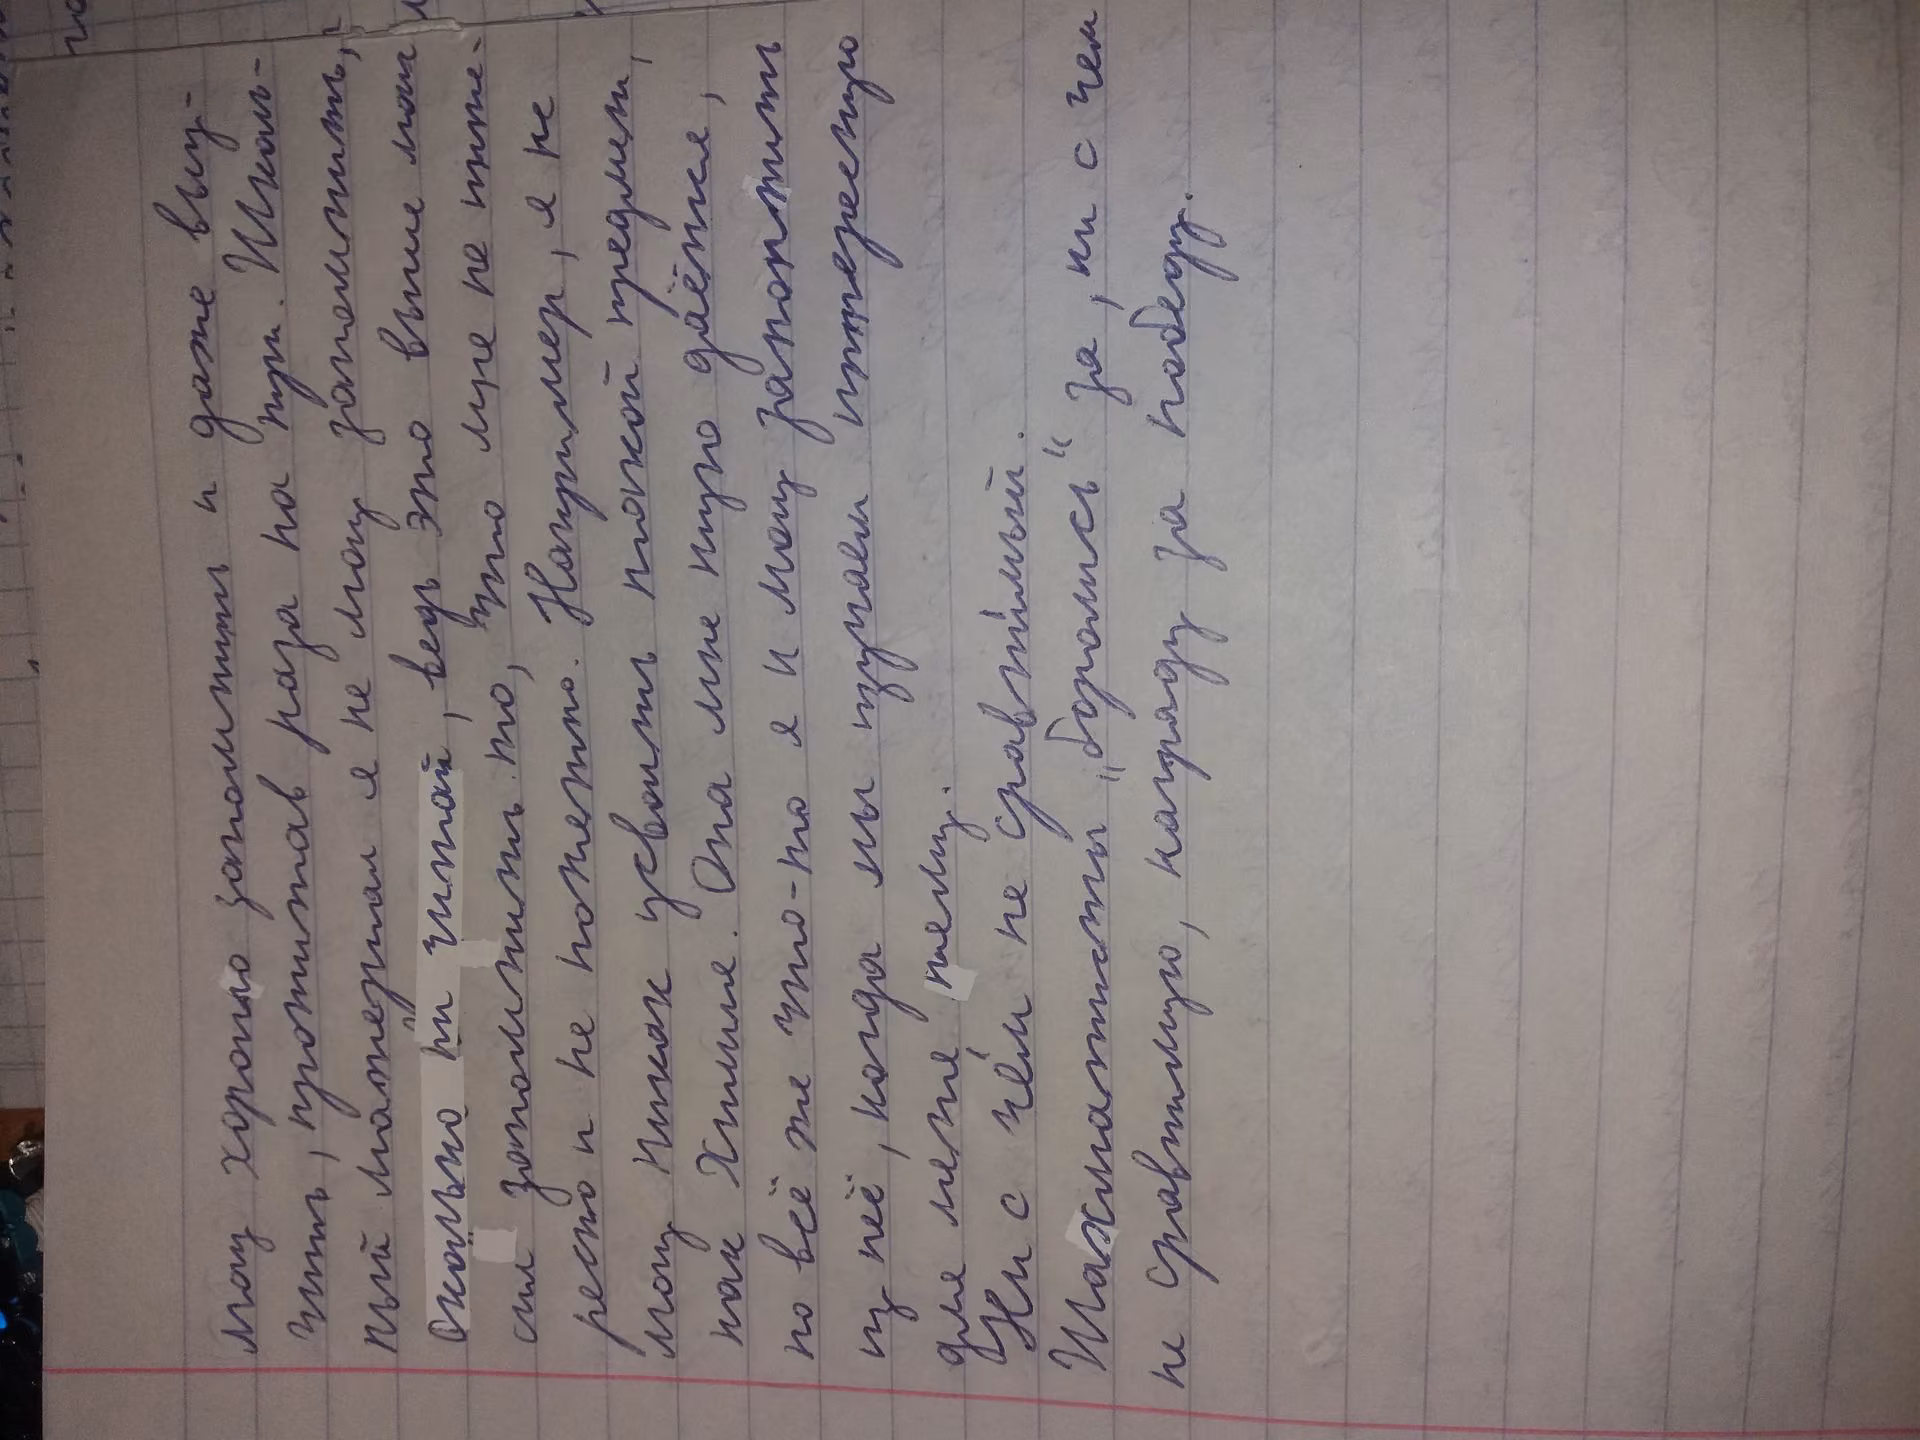 могу хорошо запомнить и даже выу-
чить, прочитав раза на три. Школь-
ный материал я не могу запомнить,
сколько ни читай, ведь это выше моих
сил запомнить то, что мне не инте-
ресно и не понятно. Например, я не
могу никак усвоить такой предмет,
как Химия. Она мне туго даётся,
но всё же что-то я и могу запомнить
из неё, когда мы изучаем интересную
для меня тему.
Ни с чем не сравнимый.
Шахматисты „боролись“ за, ни с чем
не сравнимую, награду за победу.